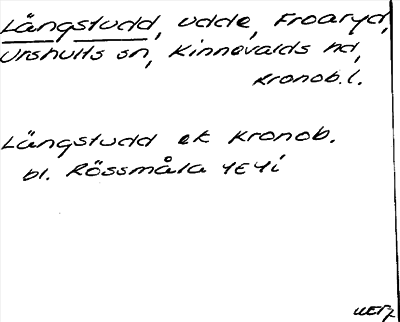 Långstudd, udde, Froaryd,
Urshults sn, Kinnevalds hd,
Kronob.l.
Långstudd ek Kronob.
bl. Rössmåla 4E4i